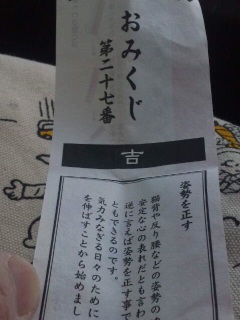 おみくじ
第二十七番
吉
姿勢を正す
猫背や反り腰などの姿勢の
安定な心の表れだとも言わ
逆に言えば姿勢を正す事で
ともできるのです。
気力みなぎる日々のために
を伸ばすことから始めまし